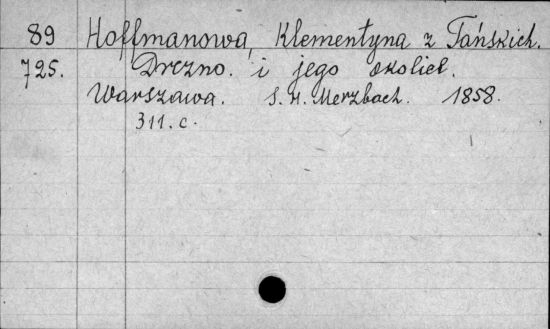 89 Hoffmanowa, Klementyna z Tańskich.
725. Drezno. i jego okolice.
Warszawa. S. H. Merzbach. 1858.
311. c.